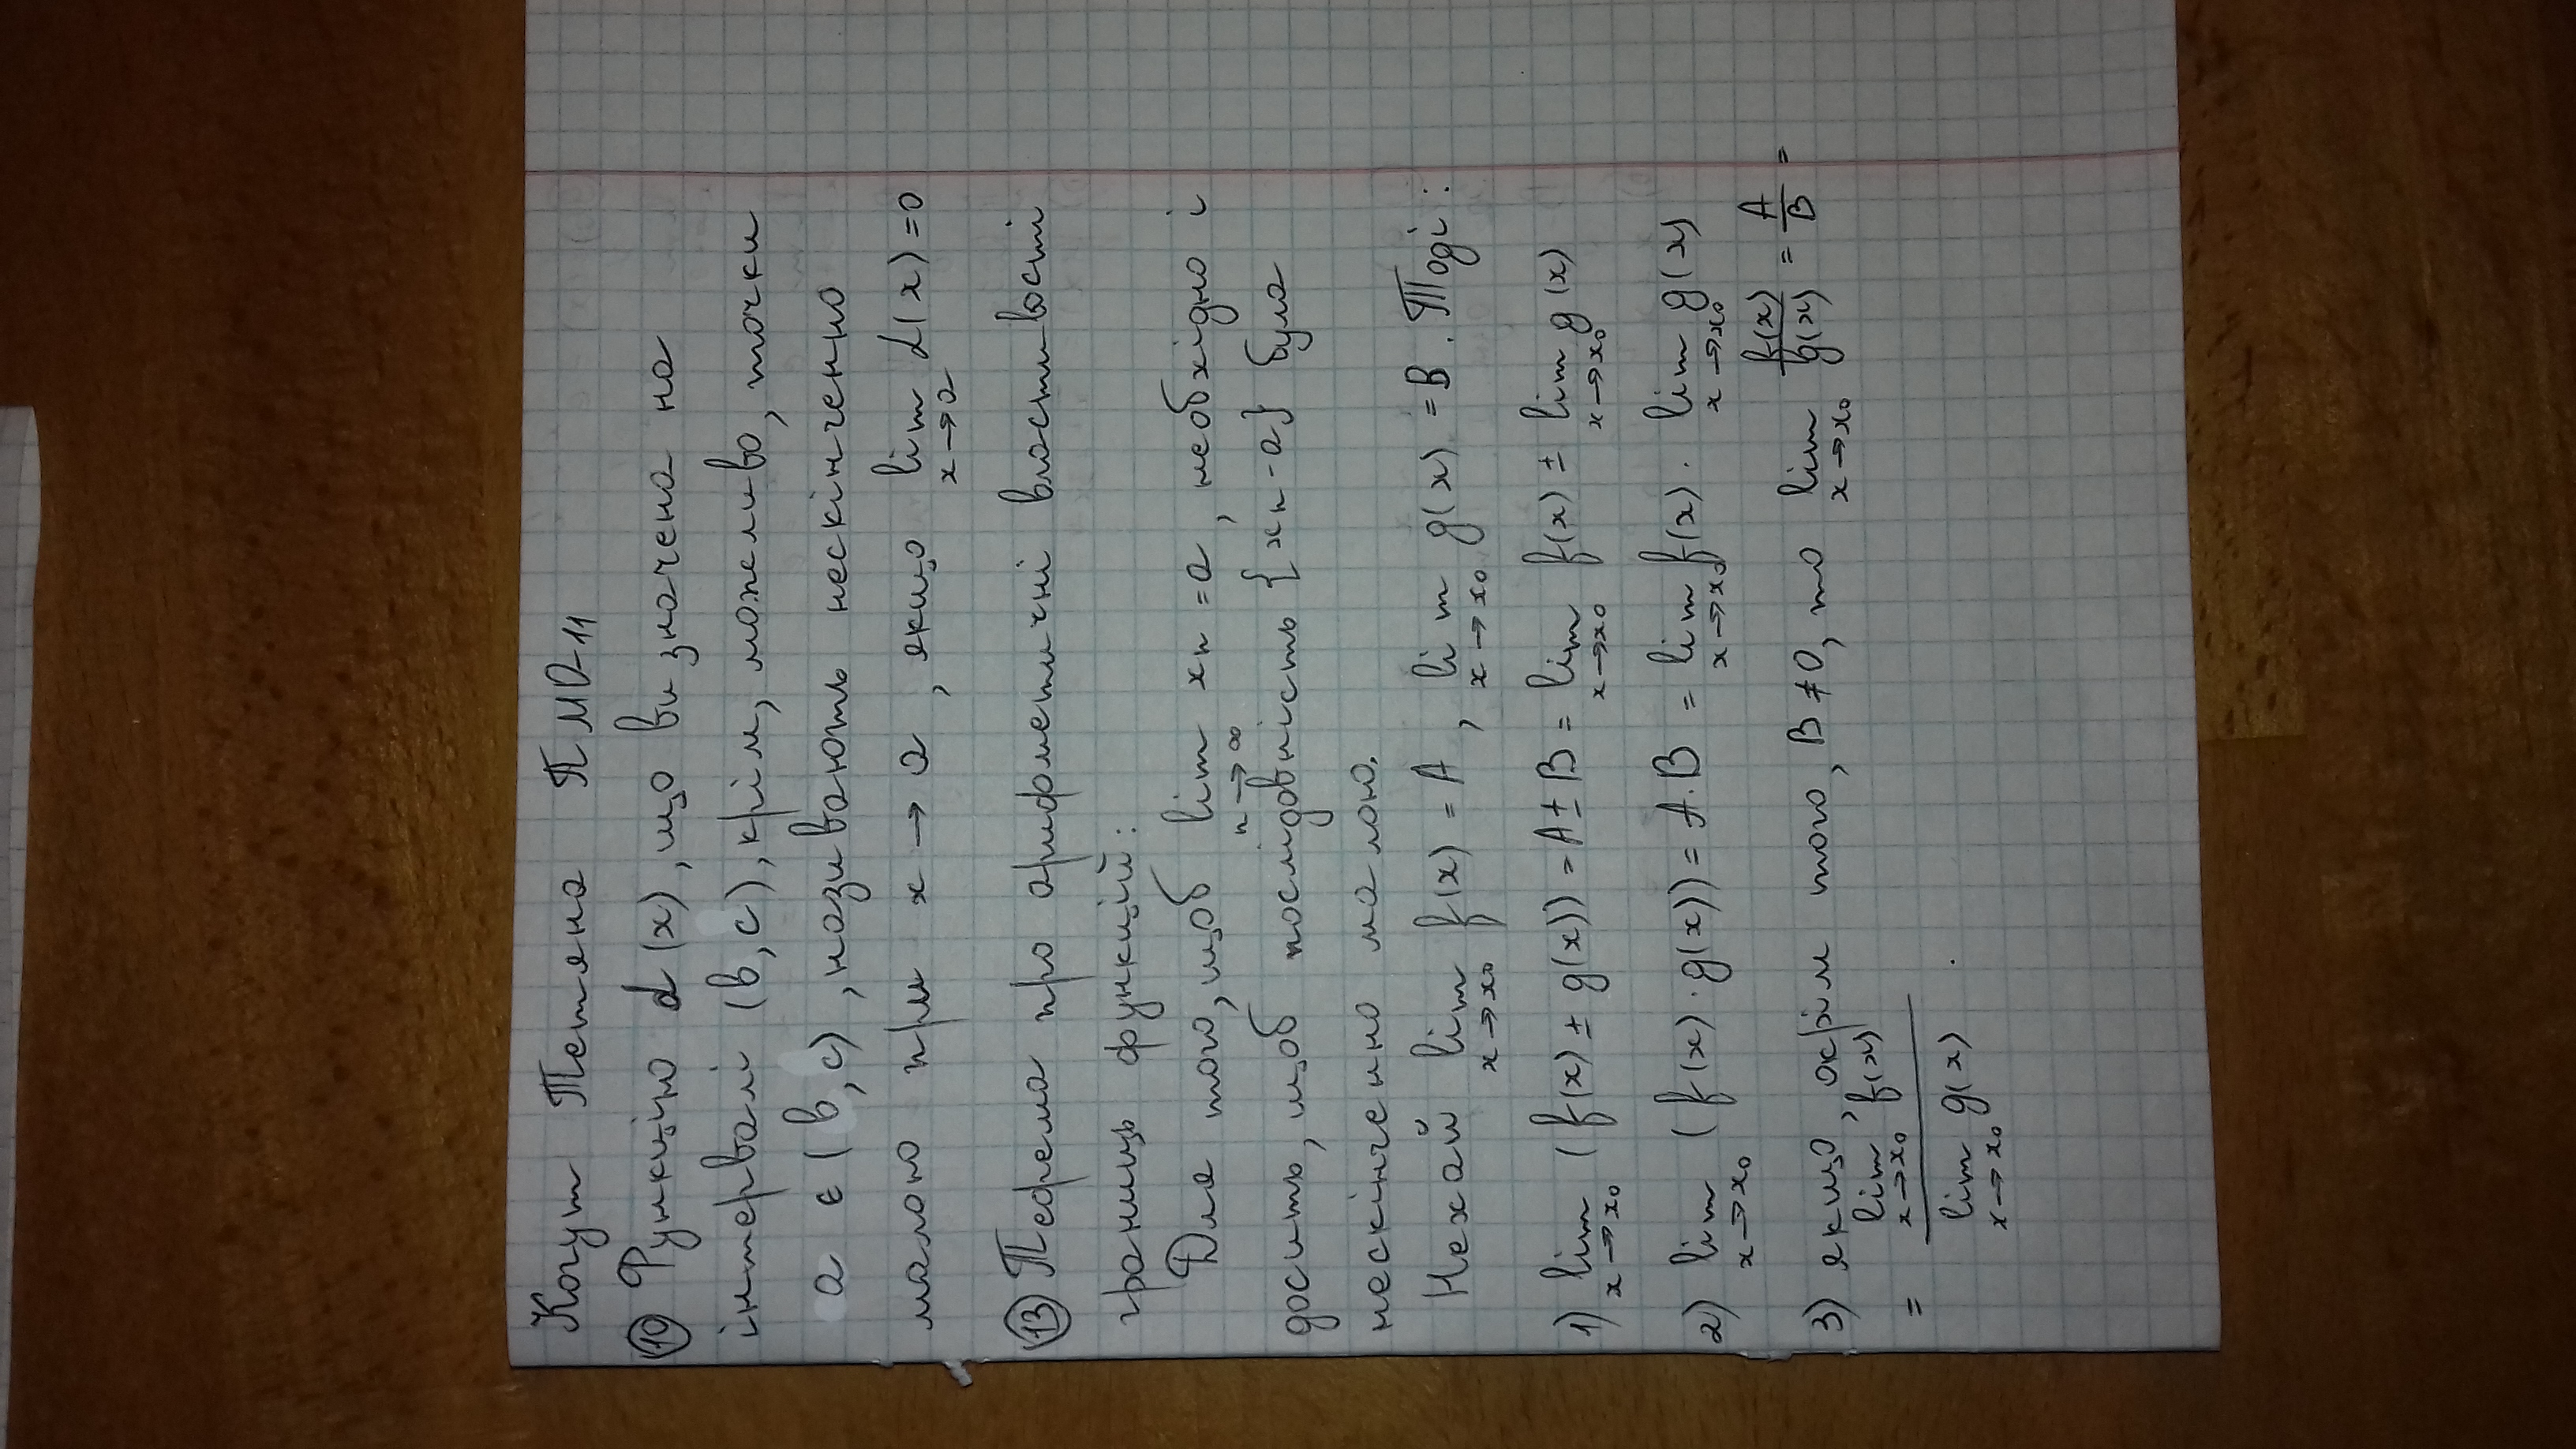 Когут Тетяна ПМО-11
⑩ Функцію α(x), що визначена на
інтервалі (в,с), крім, можливо, точки
a ∈ (в,с), називають нескінченно
малою при x → a, якщо lim α(x)=0
x→a
⑬ Теорема про арифметичні властивості
границь функцій:
Для того, щоб lim xn = a, необхідно і
n→∞
досить, щоб послідовність {xn - a} була
нескінченно малою.
Нехай lim f(x) = A, lim g(x) = B. Тоді:
x→x₀ x→x₀
1) lim (f(x) ± g(x)) = A ± B = lim f(x) ± lim g(x)
x→x₀ x→x₀ x→x₀
2) lim (f(x) · g(x)) = A·B = lim f(x) · lim g(x)
x→x₀ x→x₀ x→x₀
3) якщо, окрім того, B≠0, то lim f(x)/g(x) = A/B =
x→x₀
= lim f(x)
x→x₀
lim g(x) .
x→x₀